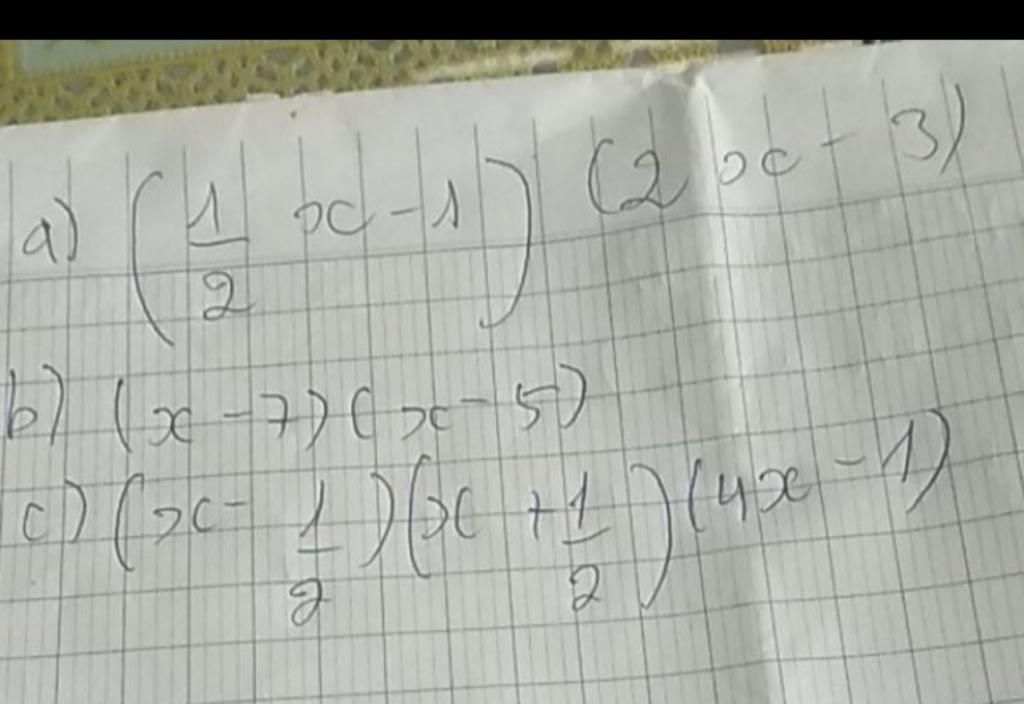 a) (1/2 x - 1) (2x - 3)
b) (x - 7)(x - 5)
c) (x - 1/2)(x + 1/2)(4x - 1)